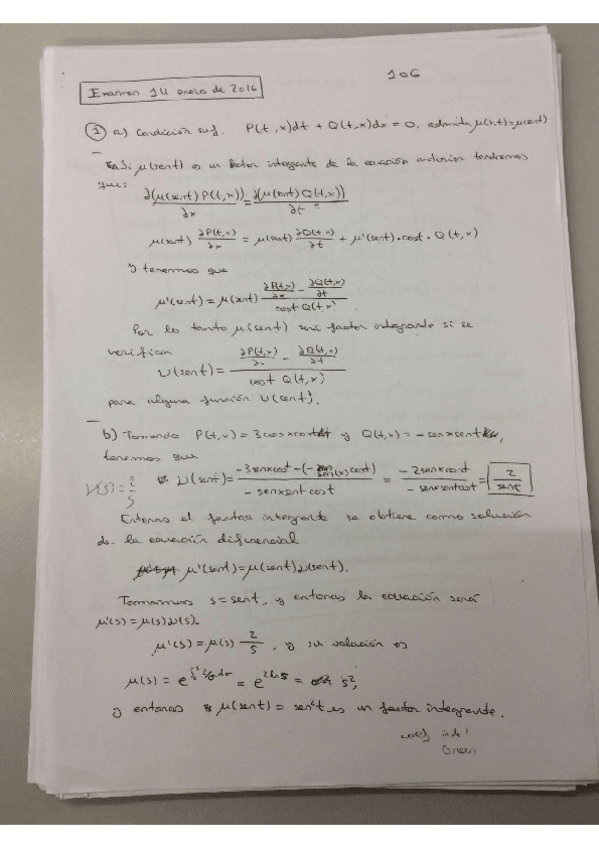 106
Examen 14 enero de 2016
① a) Condición suf. P(t,x)dt + Q(t,x)dx = 0, admita μ(t,x)=μ(sent)
Si μ(sent) es un factor integrante de la ecuación anterior tendremos
que:
∂(μ(sent) P(t,x))/∂x = ∂(μ(sent) Q(t,x))/∂t
μ(sent) ∂P(t,x)/∂x = μ(sent) ∂Q(t,x)/∂t + μ'(sent)·cost·Q(t,x)
y tenemos que
μ'(sent) = μ(sent) (∂P(t,x)/∂x - ∂Q(t,x)/∂t)/(cost Q(t,x))
Por lo tanto μ(sent) será factor integrante si se
verifica
ν(sent) = (∂P(t,x)/∂x - ∂Q(t,x)/∂t)/(cost Q(t,x))
para alguna función ν(sent).
b) Tomando P(t,x) = 3cosxcost y Q(t,x) = -senxsent,
tenemos que
ν(s) = 2/s
ν(sent) = (-3senxcost - (-sen(x)cost))/(-senxsent cost) = (-2senxcost)/(-senxsentcost) = 2/sent
Entonces el factor integrante se obtiene como solución
de la ecuación diferencial
μ'(sent) = μ(sent)ν(sent).
Tomamos s = sent, y entonces la ecuación será
μ'(s) = μ(s)ν(s).
μ'(s) = μ(s) 2/s, y su solución es
μ(s) = e^{∫ 2/σ dσ} = e^{2lns} = s²,
y entonces μ(sent) = sen²t es un factor integrante.
Green